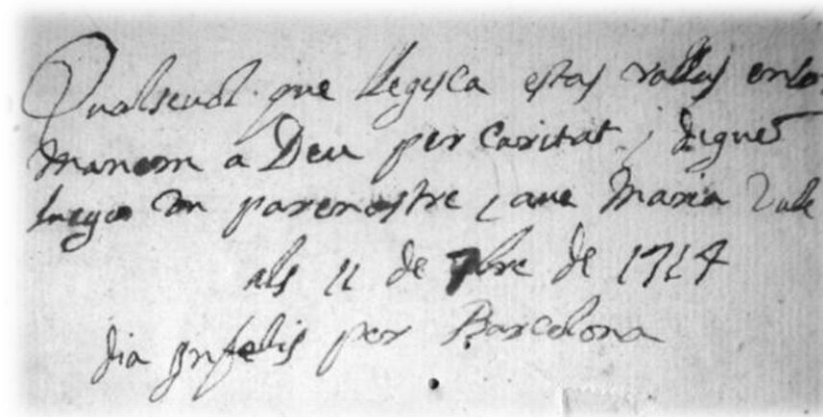 Qualsevol que llegisca estas rallas enco
manem a Deu per caritat, i digué
luego un parenostre, i ave Maria Vale
als 11 de 7bre de 1714
dia infelis per Barcelona